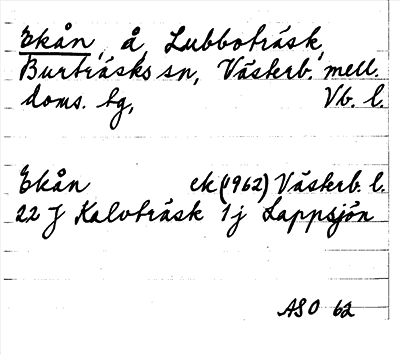 Ekån, å, Lubboträsk,
Burträsks sn, Västerb. mell.
doms. tg, Vb. l.
Ekån ek (1962) Västerb. l.
22 J Kalvträsk 1j Lappsjön
ASO 62